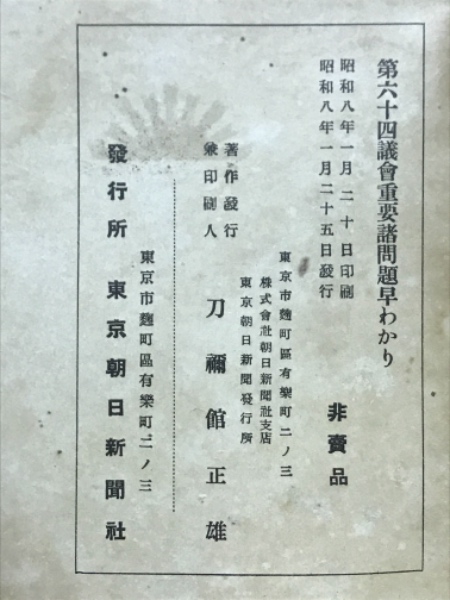 第六十四議會重要諸問題早わかり
昭和八年一月二十日印刷
昭和八年一月二十五日發行
非賣品
東京市麴町區有樂町二ノ三
株式會社朝日新聞社支店
東京朝日新聞發行所
著作發行
兼印刷人
刀禰館正雄
東京市麴町區有樂町二ノ三
發行所 東京朝日新聞社